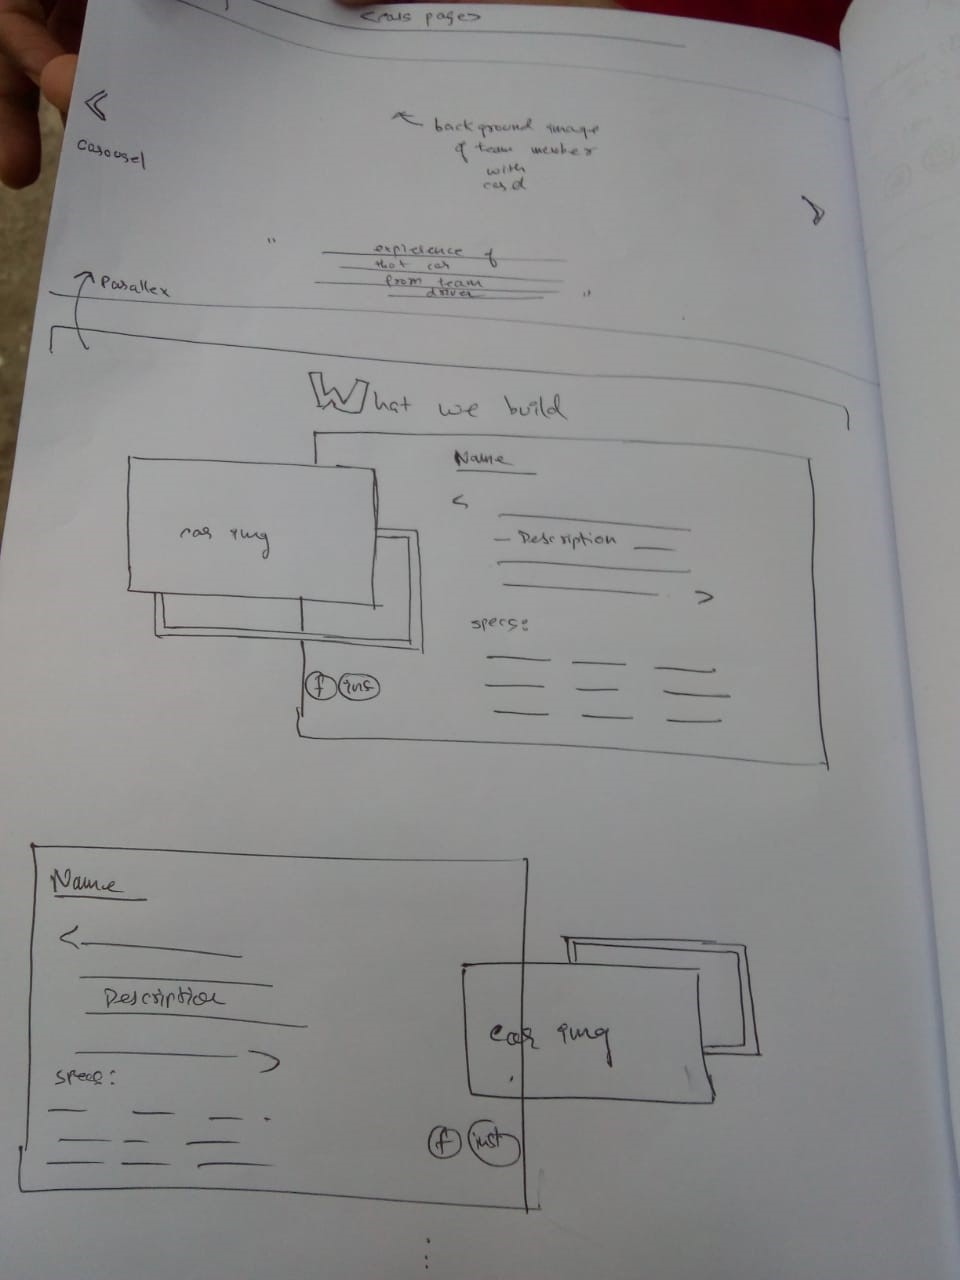 <cars pages>
Carousel
background image
of team member
with
card
"
experience of
that car
from team
driver
"
Parallex
What we build
Name
car img
Description
specs:
f ins
Name
Description
car img
specs:
f inst